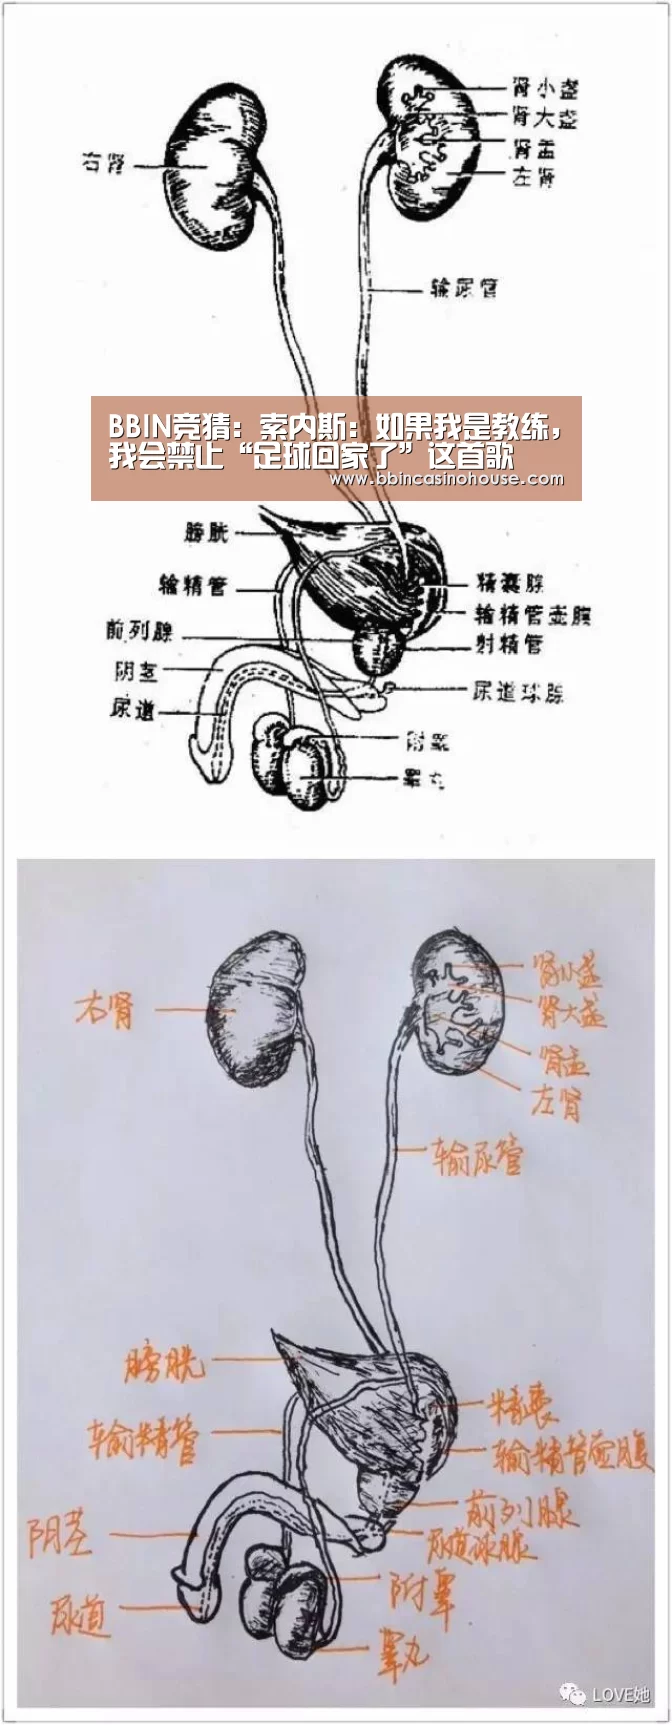 肾小盏
肾大盏
肾盂
左肾
右肾
输尿管
BBIN竞猜：索内斯：如果我是教练，
我会禁止“足球回家了”这首歌
www.bbincasinohouse.com
膀胱
输精管
前列腺
阴茎
尿道
精囊腺
输精管壶腹
射精管
尿道球腺
附睾
睾丸
肾小盏
肾大盏
肾盂
左肾
右肾
输尿管
膀胱
输精管
阴茎
尿道
精囊
输精管壶腹
前列腺
尿道球腺
附睾
睾丸
LOVE她